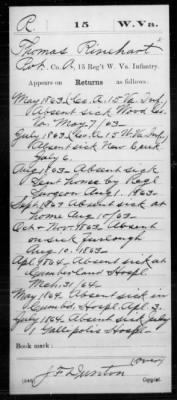 R | 15 | W. Va.
Thomas Rinehart
Co. A, 15 Reg't W. Va. Infantry.
Appears on
Returns as follows:
May 1863, Co. A. 15 Va. Inf.
Absent sick Wood Co.
Va. May 7/63
July 1863. Co. A 15 W. Va. Inf.
Absent sick New Creek
July 6.
Aug. 1863. Absent sick
Sent home by Regtl
Surgeon Aug 1. 1863.
Sept 1863 Absent sick at
home Aug 10/63
Oct & Nov. 1863, Absent
on sick furlough
Aug. 10. 1863.
Apl. 1864. Absent sick at
Cumberland Hospl.
Mch. 31/64.
May 1864. Absent sick in
Hospl. Apl. 3.
July 1864. Absent sick July
1 Gallipolis Hospl
Book mark:
(over)
J F Dunton
Copyist.